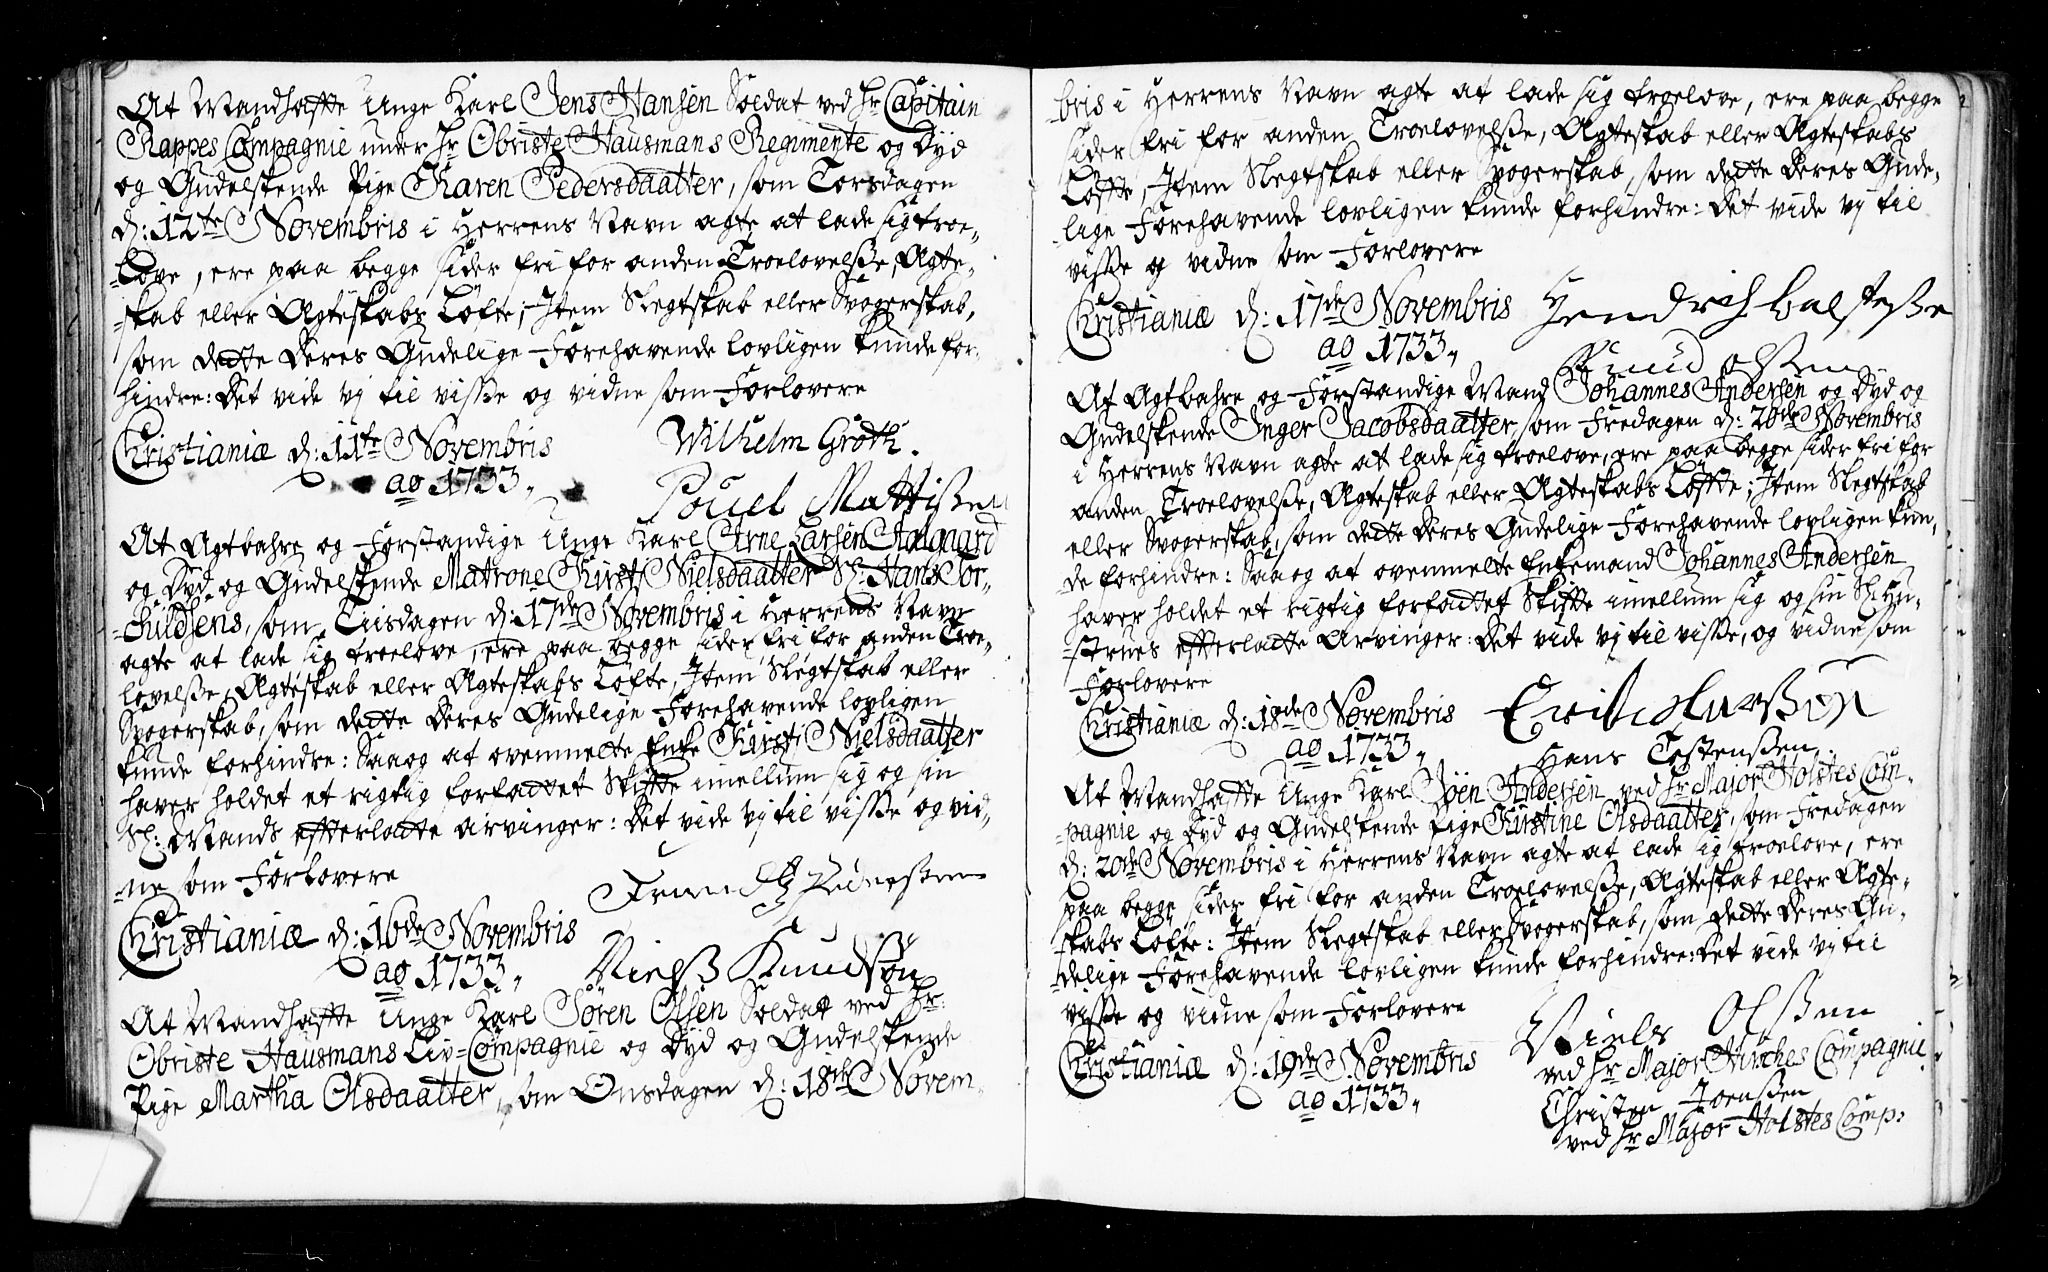 At Mandhaffte Unge Karl Jens Hansen Soldat ved Hr Capitain
Rappes Compagnie under Hr Obriste Hausmans Regimente og Dyd
og Gudelskende Pige Karen Pedersdaatter, som Torsdagen
d: 12te Novembris i Herrens Navn agte at lade sig troe-
-love, ere paa begge sider fri for anden Troelovelsse, Ægte-
-skab eller Ægteskabs Løfte; Item Slegtskab eller Svogerskab,
som dette deres Gudelige Forehavende lovligen kunde for-
hindre: det vide vj til visse og vidne som Forlovere
Christianiæ d: 11te Novembris
ao 1733,,
Wilhelm Groth.
Pouel Mattissen
At Agtbahre og Forstandige Unge Karl Arne Larsen Aalgaard
og Dyd og Gudelskende Matrone Kirsti Nielsdaatter Sl: Hans Tor-
-Guldsens, som Tiisdagen d: 17de Novembris i Herrens Navn
agte at lade sig troelove, ere paa begge sider fri for anden Troe-
lovelsse, Ægteskab eller Ægteskabs Løfte, Item Slegtskab eller
Svogerskab, som dette deres Gudelige Forehavende lovligen
kunde forhindre: Saa og at ovenmelte Enke Kirsti Nielsdaatter
haver holdet et rigtig forfattet Skifte imellum sig og sin
Sl: Mands efterladte arvinger: det vide vj til visse og vid-
-ne som Forlovere
Christianiæ d: 16de Novembris
ao 1733,,
Nielss Knudsøn
At Mandhaffte Unge Karl Søren Olsen Soldat ved Hr:
Obriste Hausmans Liv-Compagnie og Dyd og Gudelskende
Pige Martha Olsdaatter, som Onsdagen d: 18de Novem-
-bris i Herrens Navn agte at lade sig troelove, ere paa begge
sider fri for anden Troelovelsse, Ægteskab eller Ægteskabs
Løfte, Item Slegtskab eller Svogerskab, som dette deres Gude-
-lige Forehavende lovligen kunde forhindre: det vide vj til
visse og vidne som Forlovere
Christianiæ d: 17de Novembris
ao 1733,,
Hendrich
Knud olssen
At Agtbahre og Forstandige Mand Johannes Andersen og Dyd og
Gudelskende Inger Jacobsdaatter, som Fredagen d: 20de Novembris
i Herrens Navn agte at lade sig troelove, ere paa begge sider fri for
anden Troelovelsse, Ægteskab eller Ægteskabs Løffte; Item Slegtskab
eller Svogerskab, som dette deres Gudelige Forehavende lovligen kun-
-de forhindre: Saa og at ovenmelte Enkemand Johannes Andersen
haver holdet et rigtig forfattet Skifte imellum sig og sin Sl: Hu-
-strues efterladte Arvinger: det vide vj til visse, og vidne som
Forlovere
Christianiæ d: 18de Novembris
ao 1733,,
Hans Testenssen
At Mandhaffte Unge Karl Joen Andersen ved Hr Major Holstes Com-
-pagnie og Dyd og Gudelskende Pige Kirstine Olsdaatter, som Fredagen
d: 20de Novembris i Herrens Navn agte at lade sig troelove, ere
paa begge sider fri for anden Troelovelsse, Ægteskab eller Ægte-
-skabs Løfte: Item Slegtskab eller Svogerskab, som dette deres Gu-
-delige Forehavende lovligen kunde forhindre: det vide vj til
visse og vidne som Forlovere
Christianiæ d: 19de Novembris
ao 1733,,
Niels Olssen
ved Hr Major Hirches Compagnie
Christen Joenssen
ved Hr Major Holstes Comp: